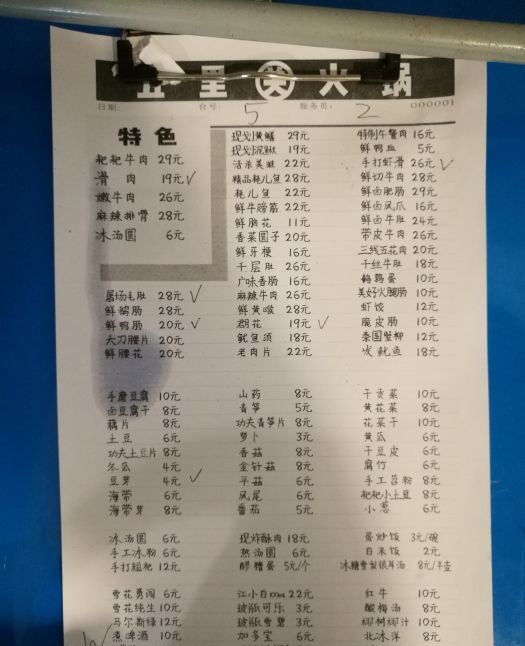 五里关火锅
日期: 台号: 5 服务员: 2 000001
特色
粑粑牛肉 29元
滑肉 19元
嫩牛肉 26元
麻辣排骨 28元
冰汤圆 6元
屠场毛肚 28元
鲜鹅肠 28元
鲜鸭肠 20元
大刀腰片 20元
鲜腰花 20元
现划黄鳝 29元
现划泥鳅 19元
活杀美蛙 22元
精品耗儿鱼 28元
耗儿鱼 22元
鲜牛蹄筋 22元
鲜胗花 11元
香菜圆子 20元
鲜牙梗 16元
千层肚 26元
广味香肠 16元
麻辣牛肉 26元
鲜黄喉 28元
郡花 19元
鱿鱼须 18元
老肉片 22元
特制午餐肉 16元
鲜鸭血 5元
手打虾滑 26元
鲜切牛肉 28元
鲜卤肥肠 29元
鲜卤凤爪 16元
鲜卤牛肚 24元
带皮牛肉 26元
三线五花肉 20元
千丝牛肚 18元
鹌鹑蛋 10元
美好火腿肠 10元
虾饺 12元
脆皮肠 10元
泰国蟹柳 12元
火鱿鱼 18元
手磨豆腐 10元
卤豆腐干 8元
藕片 8元
土豆 6元
功夫土豆片 8元
冬瓜 4元
豆芽 4元
海带 6元
海带芽 8元
山药 8元
青笋 5元
功夫青笋片 8元
萝卜 3元
香菇 8元
金针菇 8元
平菇 6元
凤尾 6元
番茄 5元
干贡菜 10元
黄花菜 8元
花菜干 10元
黄瓜 6元
干豆皮 6元
腐竹 6元
手工苕粉 8元
粑粑小土豆 8元
小葱 6元
冰汤圆 6元
手工冰粉 6元
手打糍粑 12元
现炸酥肉 18元
热汤圆 6元
醪糟蛋 5元/个
蛋炒饭 3元/碗
白米饭 2元
冰糖雪梨银耳汤 8元/半壶
雪花勇闯 6元
雪花纯生 10元
马尔斯绿 12元
煮啤酒 10元
江小白100ml 22元
玻瓶可乐 3元
玻瓶雪碧 3元
加多宝 6元
红牛 10元
酸梅汤 8元
椰树椰汁 10元
北冰洋 8元